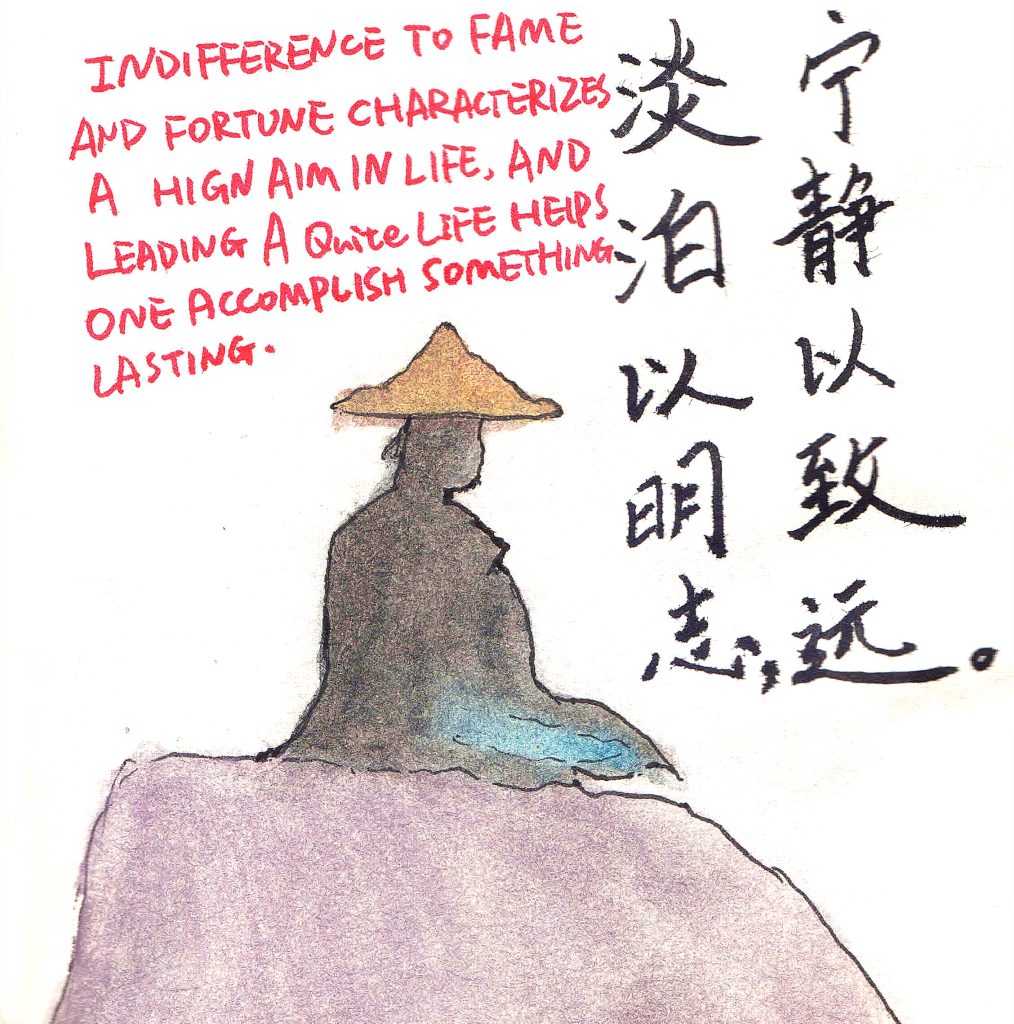 INDIFFERENCE TO FAME
AND FORTUNE CHARACTERIZES
A HIGN AIM IN LIFE, AND
LEADING A Quite LIFE HELPS
ONE ACCOMPLISH SOMETHING
LASTING.
淡泊以明志,
宁静以致远。